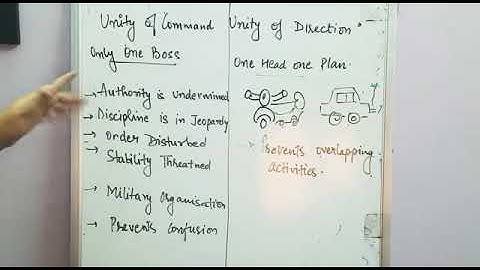 Unity of Command
Only One Boss
→ Authority is undermined
→ Discipline is in Jeopardy
→ Order Disturbed
→ Stability Threatned
→ Military Organisation
→ Prevents Confusion
Unity of Direction
One Head one Plan
Prevents overlapping
activities.